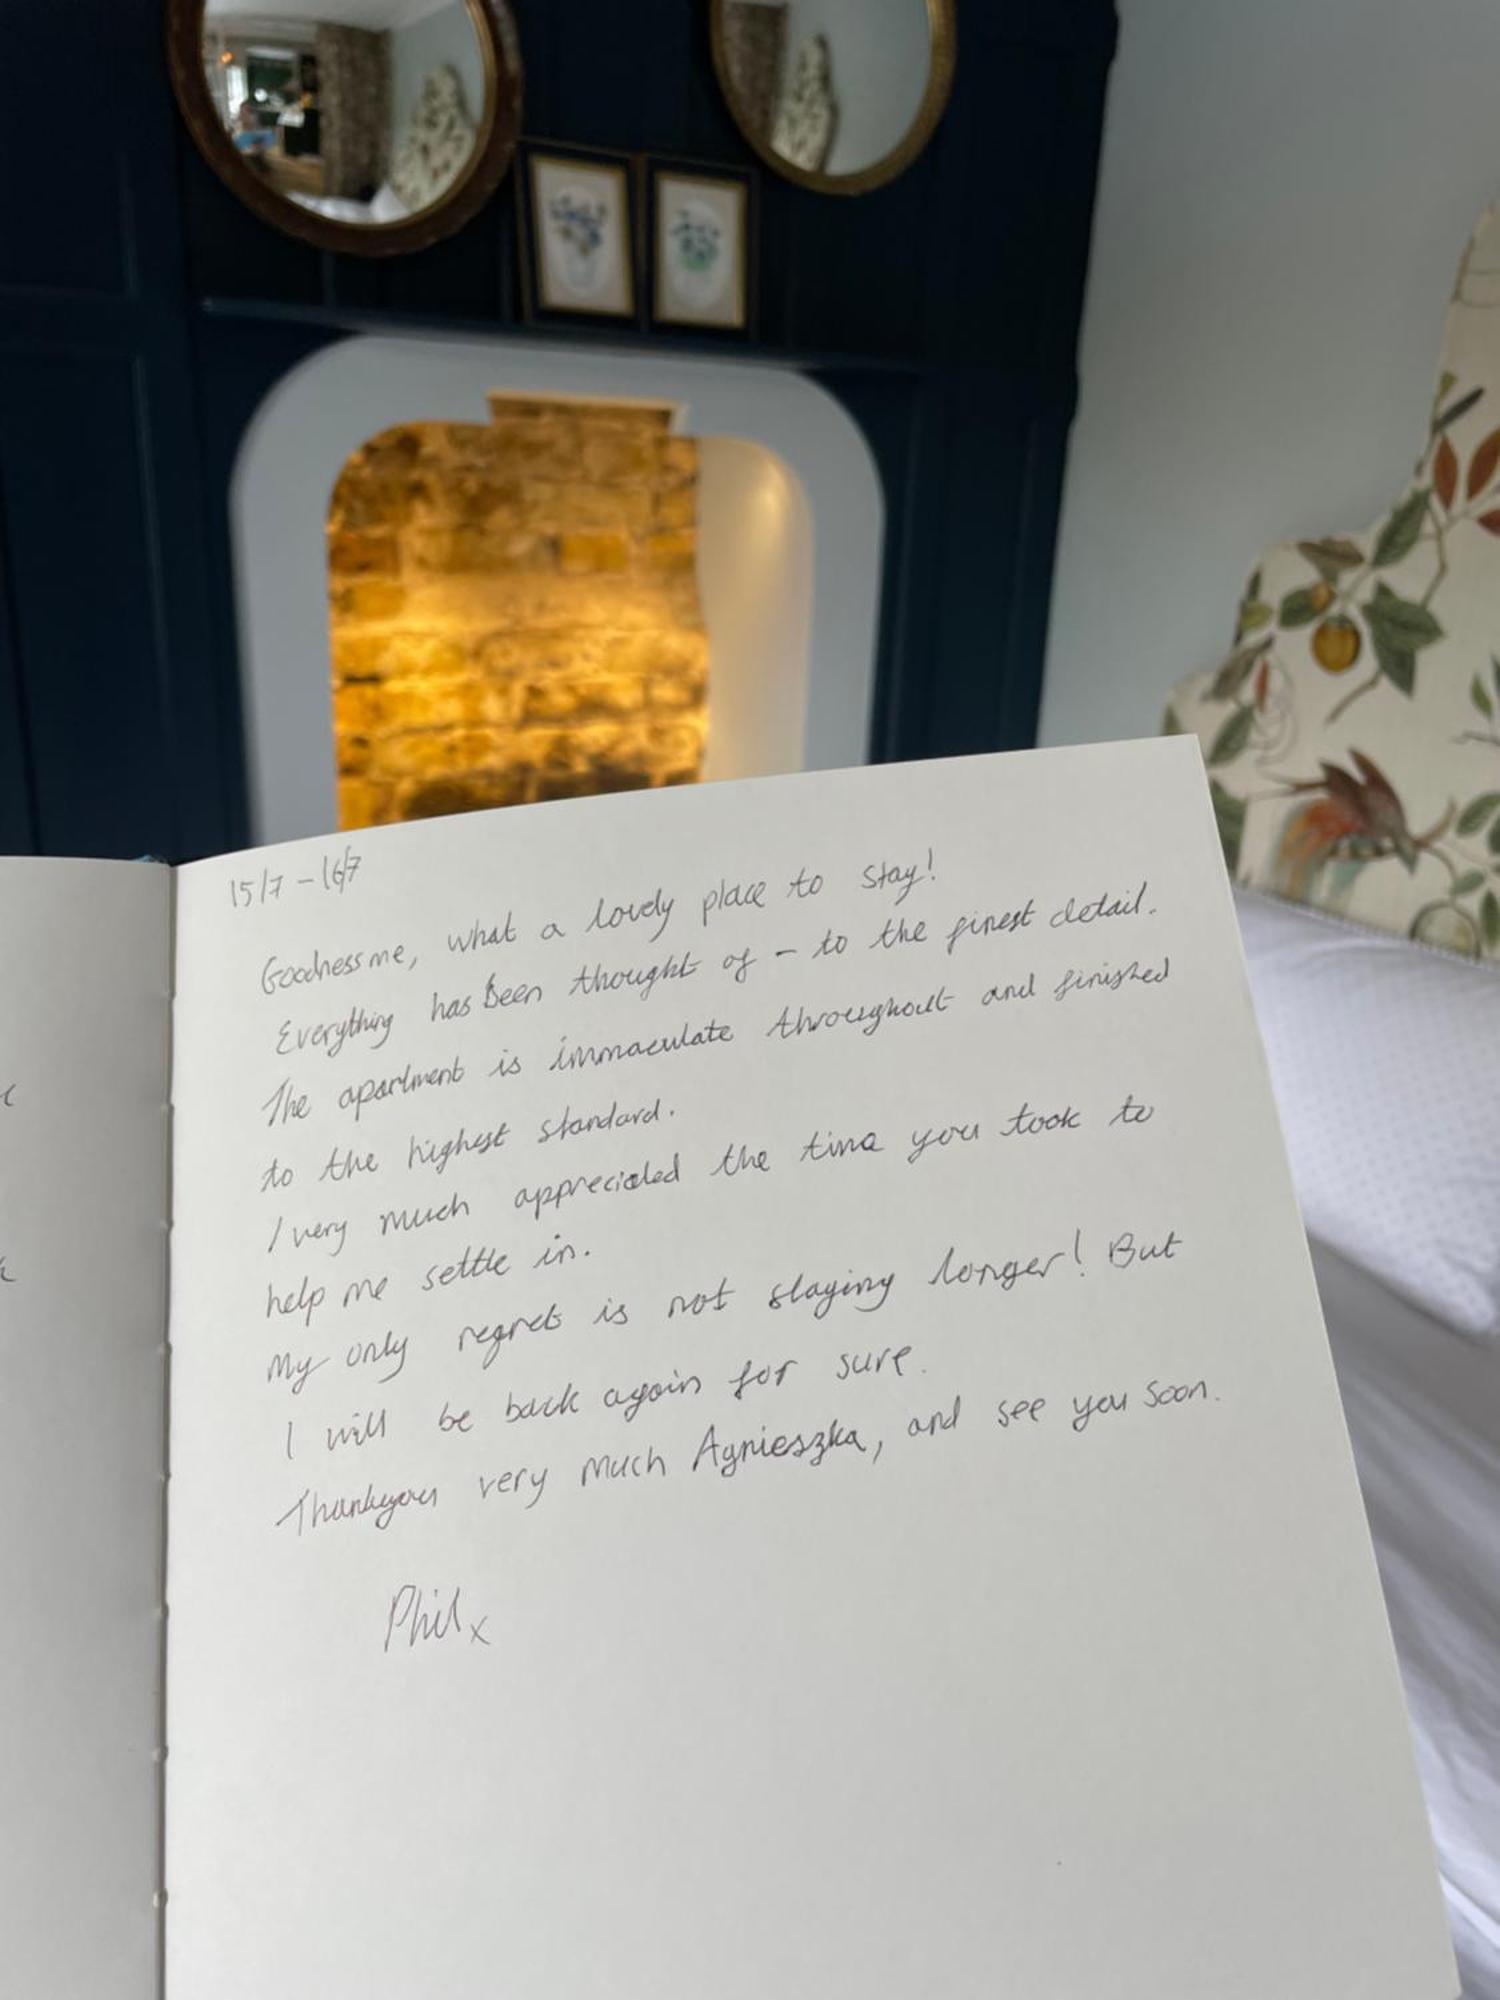 15/7 - 16/7
Goodness me, what a lovely place to stay!
Everything has been thought of - to the finest detail.
The apartment is immaculate throughout and finished
to the highest standard.
I very much appreciated the time you took to
help me settle in.
My only regret is not staying longer! But
I will be back again for sure.
Thankyou very much Agnieszka, and see you soon.
Phil x